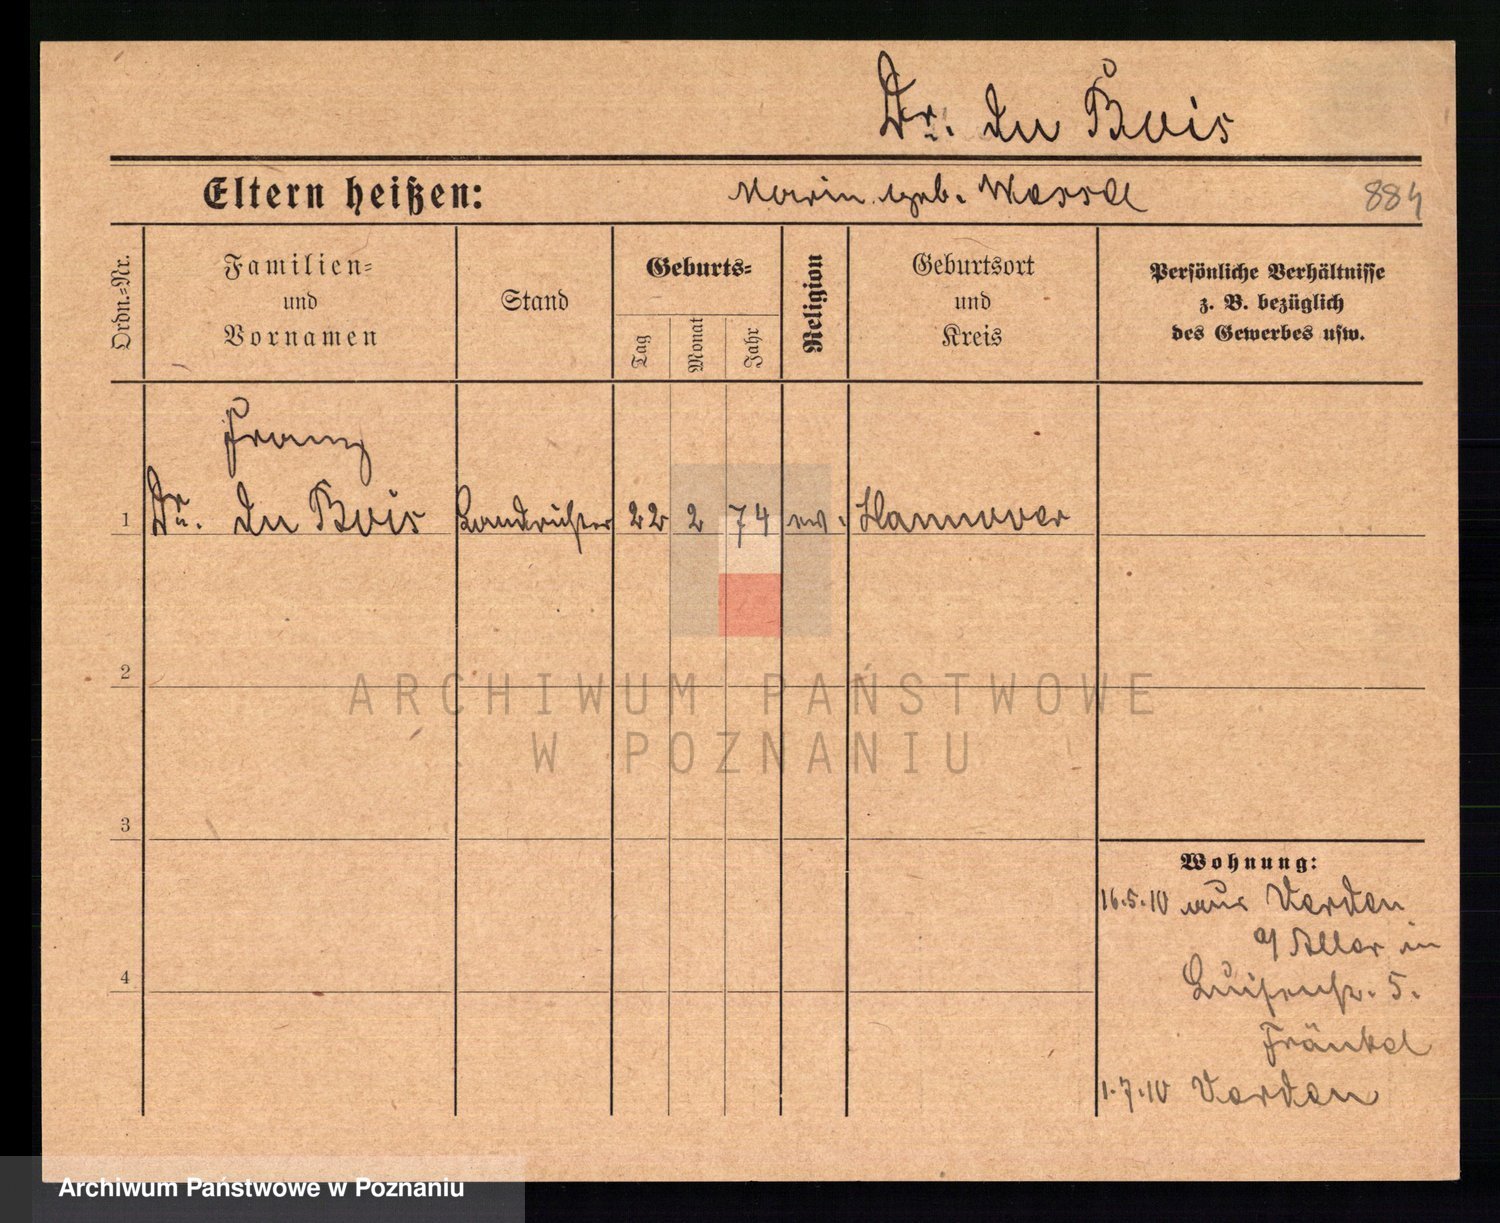 Dr. du Bois
Eltern heißen:
Marie geb.
884
Ordn.-Nr.
Familien-
und
Vornamen
Stand
Geburts-
Tag
Monat
Jahr
Religion
Geburtsort
und
Kreis
Persönliche Verhältnisse
z. B. bezüglich
des Gewerbes usw.
Franz
1 Dr. du Bois Landrichter 22 2 74 ev. Hannover
2
ARCHIWUM PAŃSTWOWE
W POZNANIU
3
Wohnung:
16.5.10 aus Verden
a/ Aller in
4
Luisenstr. 5.
Fränkel
1.7.10 Verden
Archiwum Państwowe w Poznaniu